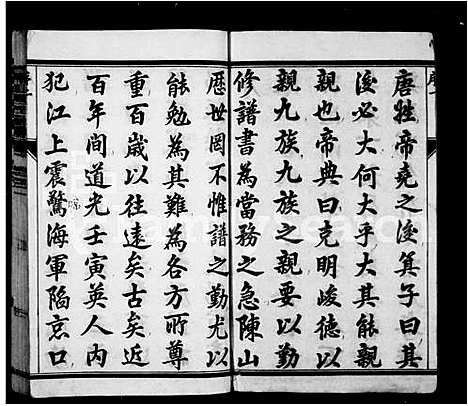 唐牲帝堯之後箕子曰其
後必大何大乎大其能親
親也帝典曰克明峻德以
親九族九族之親要以勤
修譜書為當務之急陳山
歷世罔不惟譜之勤尤以
能勉為其難為各方所尊
重百歲以往遠矣古矣近
百年間道光壬寅英人內
犯江上震驚海軍陷京口